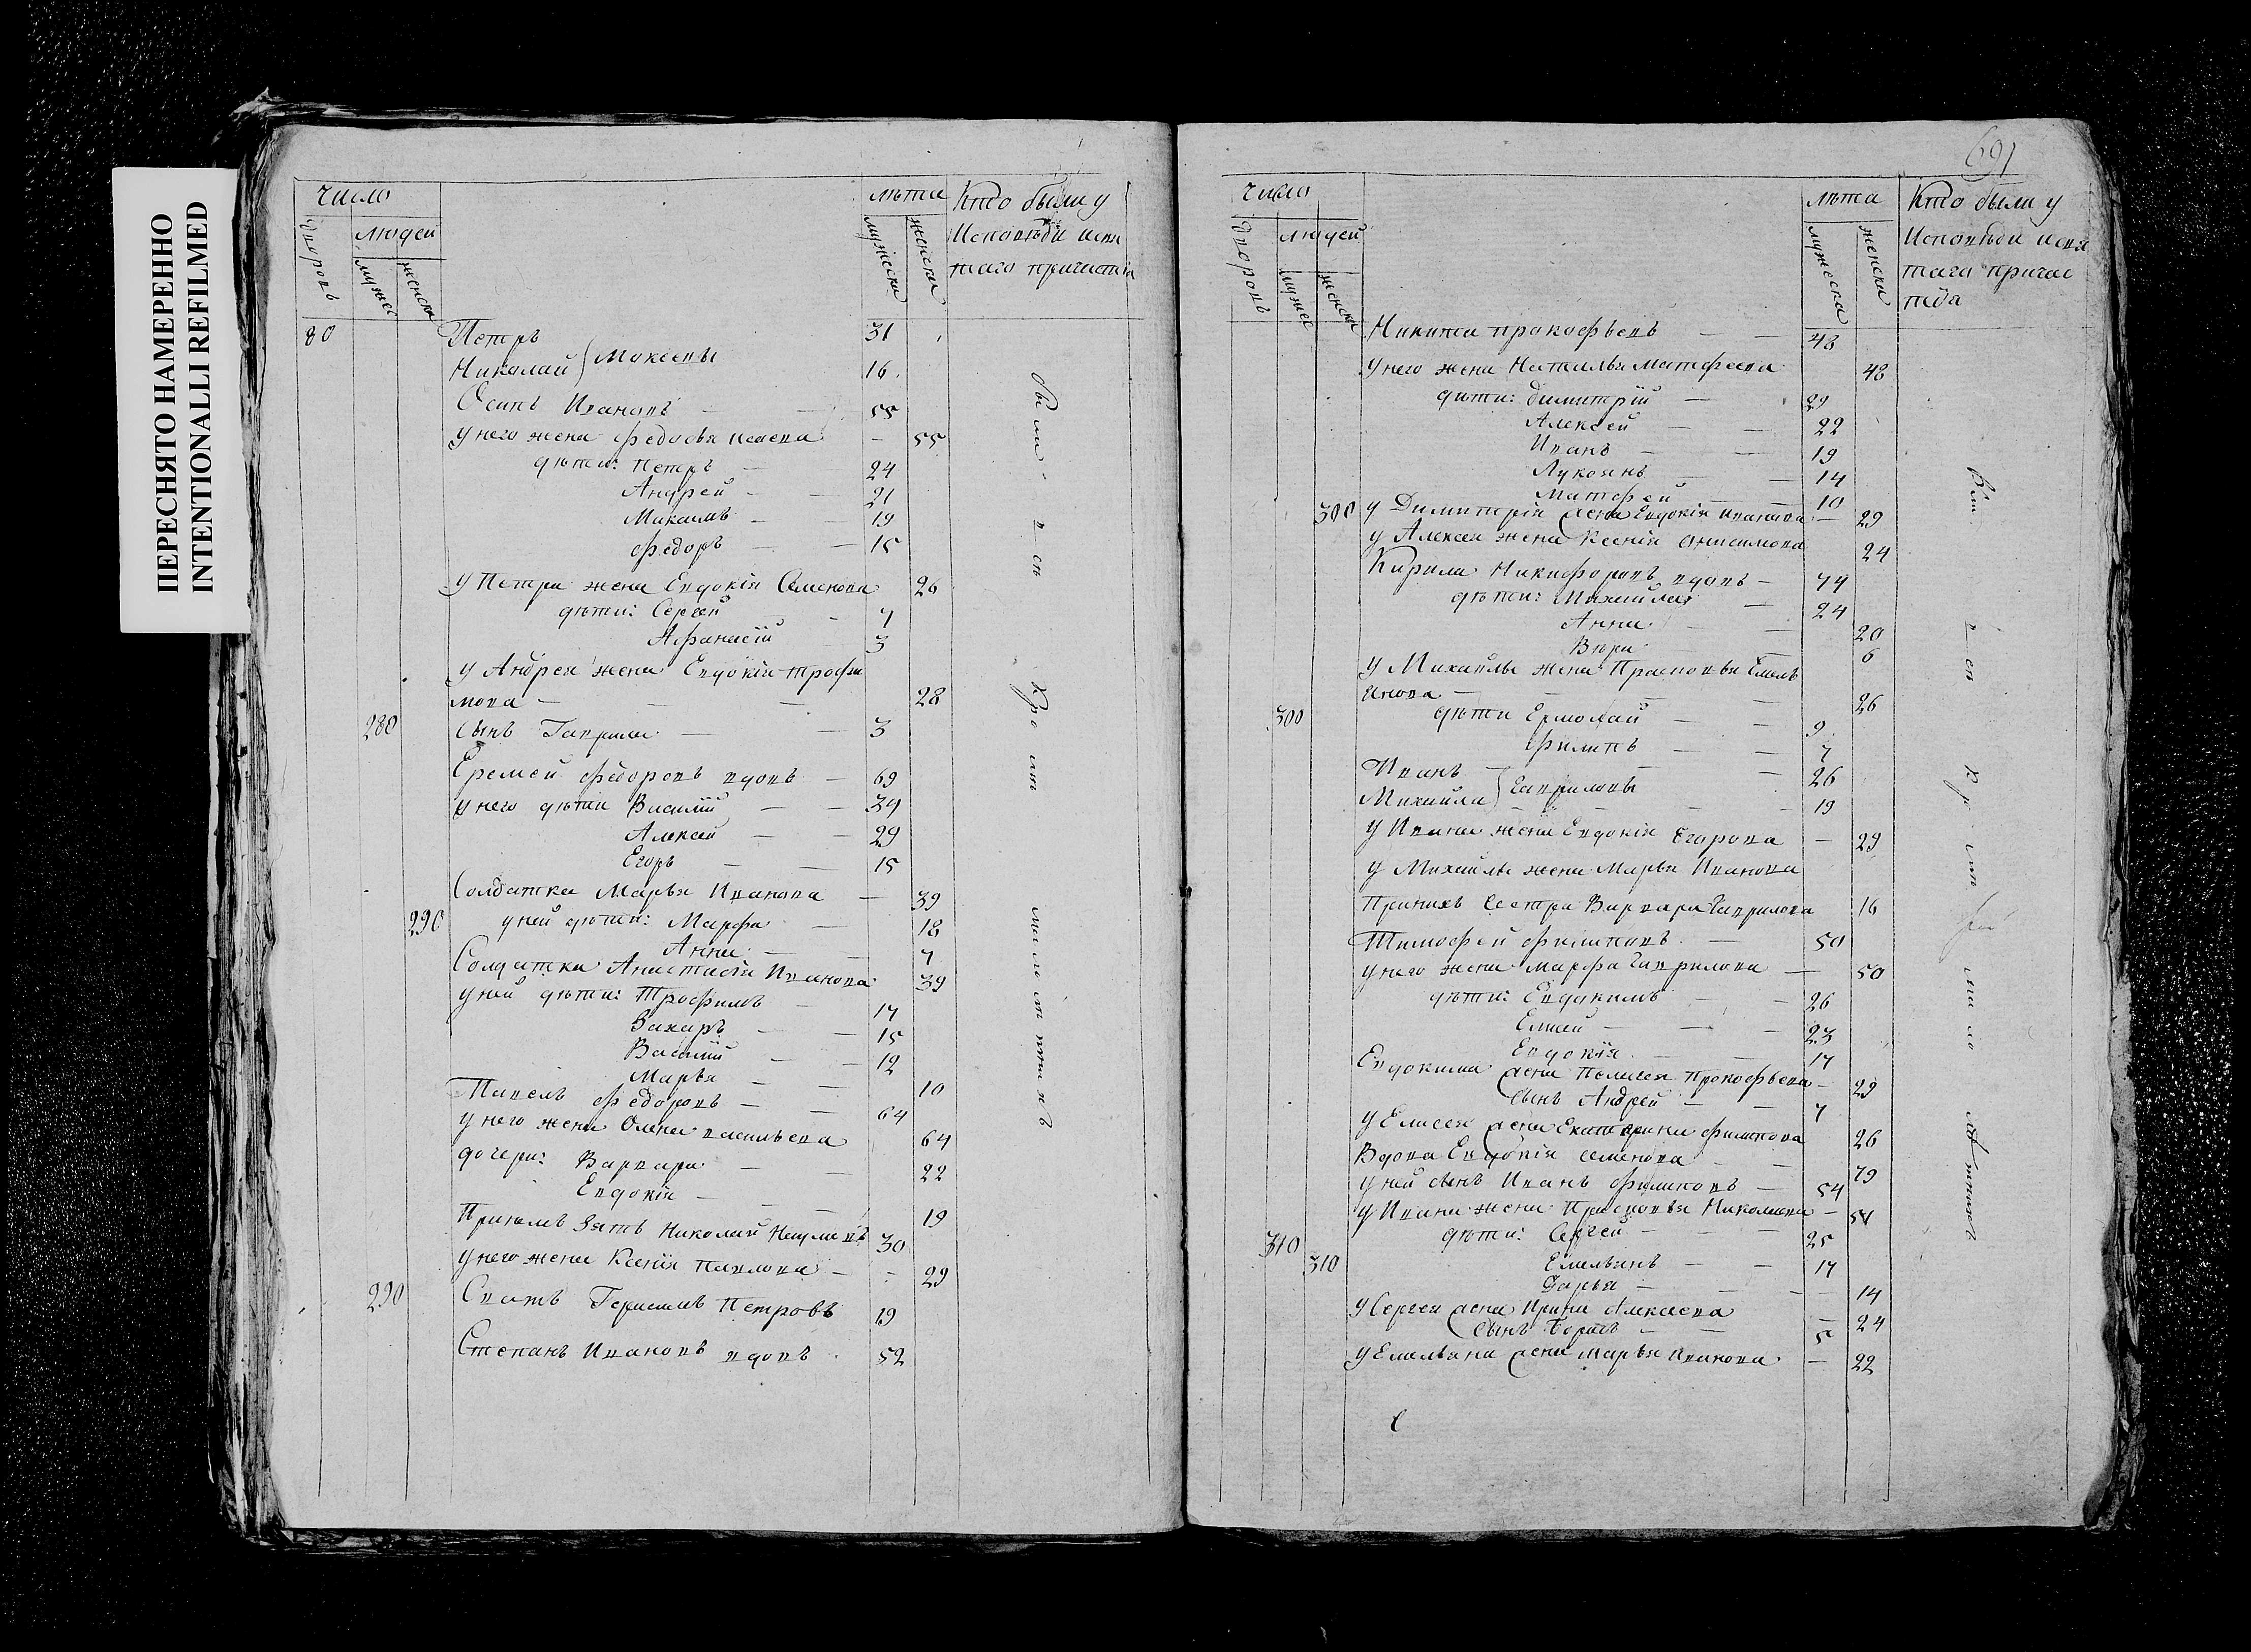 ПЕРЕСНЯТО НАМЕРЕННО
INTENTIONALLI REFILMED
число
людей
дворовъ
мужес
женска
лѣта
мужеска
женска
Кто были у
Исповѣди и свя
таго причастия
80 Петръ 31
Николай } Моксевы 16
Осипъ Ивановъ — 55
у него жена Федосья Исаева — 55
дѣти: Петръ — 24
Андрей — 21
Михаилъ — 19
Федоръ — 15
у Петра жена Евдокія Семенова 26
дѣти: Сергей — 7
Афанасій 3
у Андрея жена Евдокія Трофи
мова — 28
280 сынъ Гаврила — 3
Еремей Федоровъ вдовъ — 69
у него дѣти Василій — 34
Алексей — 29
Егоръ — 15
Солдатка Марья Иванова — 39
290 у ней дѣти: Марфа — 18
Анна — 7
Солдатка Анастасія Иванова 39
у ней дѣти: Трофимъ — 17
Захаръ — 15
Василій — 12
Марья — 10
Павелъ Федоровъ — 64
у него жена Олена васильева 64
дочери: Варвара — 22
Евдокія — 19
Приемъ Зять Николай 30
у него жена Ксенія Павлова — 29
290 Сватъ Герасимъ Петровъ 19
Степанъ Ивановъ вдовъ 52
были всѣ
691
число
дворовъ
людей
мужес
женска
лѣта
мужеска
женска
Кто были у
Исповѣди и свя
таго причас
тія
Никита прокофьевъ — 48
у него жена Наталья Матфеева 48
дѣти: Димитрій — 29
Алексей — 22
Иванъ — 19
Лукоянъ — 14
Матфей — 10
300 у Димитрія жена Евдокія Иванова — 29
у Алексея жена Ксенія Анисимова 24
Кирила Никифоровъ вдовъ — 74
дѣти: Михайла — 24
Анна — 20
Вера — 6
у Михайлы жена Прасковья Емель
янова — 26
300 дѣти Ермолай — 9
Филипъ — 7
Иванъ — 26
Михайла } Гавриловы 19
у Ивана жена Евдокія Егорова — 29
у Михайлы жена Марья Иванова
Сестра Варвара Гаврилова 16
Тимофей Филиповъ — 50
у него жена Марфа Гаврилова — 50
дѣти: Евдокимъ — 26
Елисей — 23
Евдокія — 17
Евдокима жена Пелагея Прокофьева — 29
Сынъ Андрей — 7
у Елисея жена Екатерина Филипова 26
Вдова Евдокія семенова — 79
у ней сынъ Иванъ Филиповъ — 54
у Ивана жена Прасковья Николаева — 54
310 дѣти: Сергей — 25
310 Емельянъ — 17
Дарья — 14
у Сергея жена Ирина Алексеева — 24
Сынъ Борисъ — 5
у Емельяна жена Марья Иванова — 22